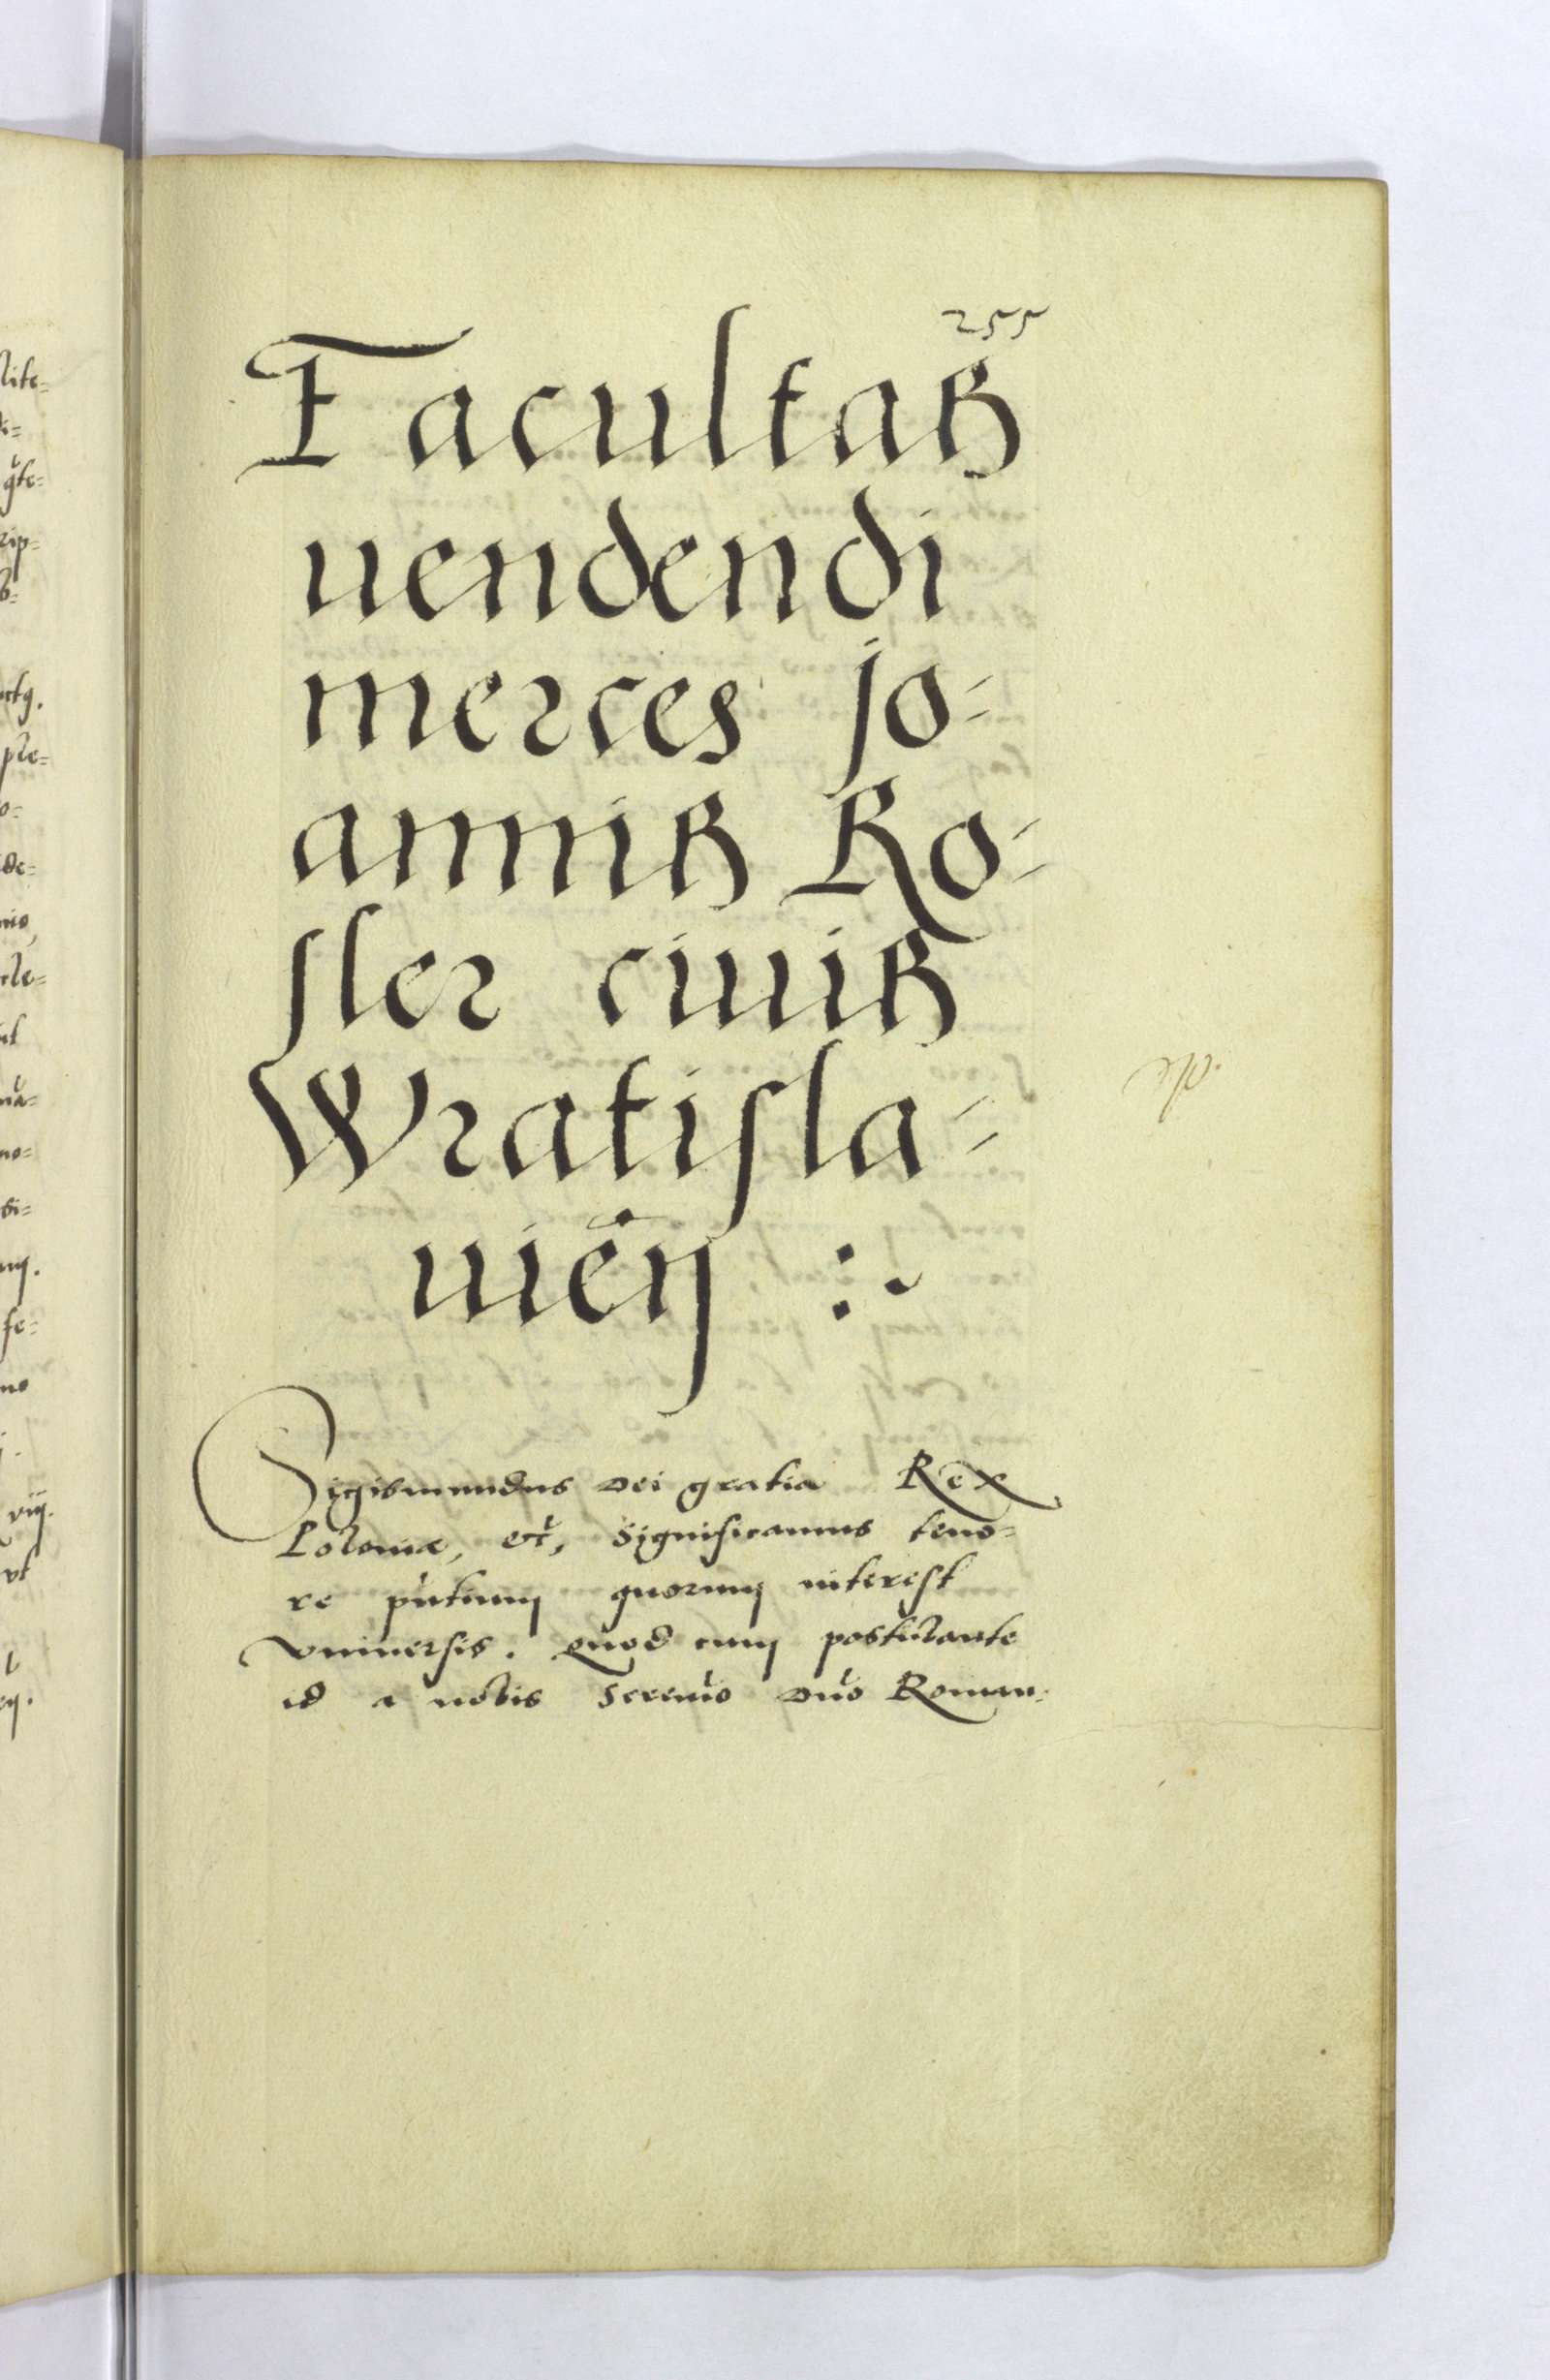 255
Facultas
uendendi
merces Jo=
annis Ro=
sler ciuis
Wratisla=
uien̄ :~
Sigismundus Dei gratia Rex
Poloniæ, etc, Significamus teno=
re pñtium quorum interest
vniuersis. Quod cum postulante
id a nobis Sereno Dño Roman: